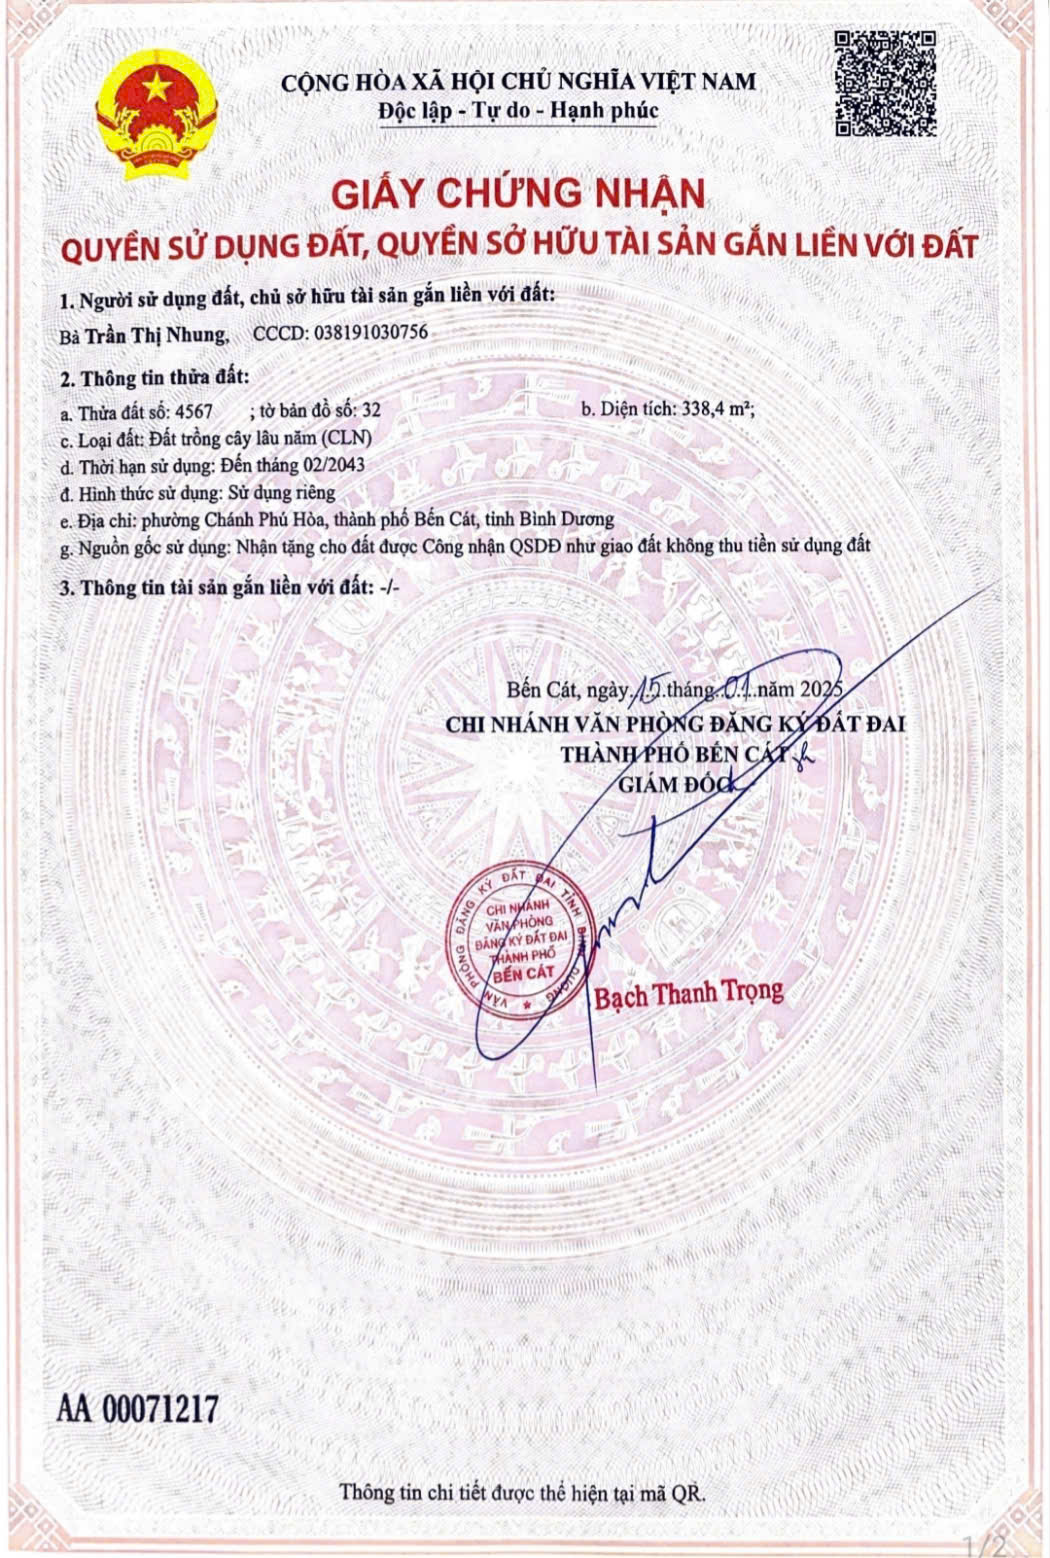 CỘNG HÒA XÃ HỘI CHỦ NGHĨA VIỆT NAM
Độc lập - Tự do - Hạnh phúc
GIẤY CHỨNG NHẬN
QUYỀN SỬ DỤNG ĐẤT, QUYỀN SỞ HỮU TÀI SẢN GẮN LIỀN VỚI ĐẤT
1. Người sử dụng đất, chủ sở hữu tài sản gắn liền với đất:
Bà Trần Thị Nhung, CCCD: 038191030756
2. Thông tin thửa đất:
a. Thửa đất số: 4567 ; tờ bản đồ số: 32 b. Diện tích: 338,4 m²;
c. Loại đất: Đất trồng cây lâu năm (CLN)
d. Thời hạn sử dụng: Đến tháng 02/2043
đ. Hình thức sử dụng: Sử dụng riêng
e. Địa chỉ: phường Chánh Phú Hòa, thành phố Bến Cát, tỉnh Bình Dương
g. Nguồn gốc sử dụng: Nhận tặng cho đất được Công nhận QSDĐ như giao đất không thu tiền sử dụng đất
3. Thông tin tài sản gắn liền với đất: -/-
Bến Cát, ngày 15 tháng 01 năm 2025
CHI NHÁNH VĂN PHÒNG ĐĂNG KÝ ĐẤT ĐAI
THÀNH PHỐ BẾN CÁT
GIÁM ĐỐC
VĂN PHÒNG ĐĂNG KÝ ĐẤT ĐAI TỈNH BÌNH DƯƠNG
CHI NHÁNH
VĂN PHÒNG
ĐĂNG KÝ ĐẤT ĐAI
THÀNH PHỐ
BẾN CÁT
Bạch Thanh Trọng
AA 00071217
Thông tin chi tiết được thể hiện tại mã QR.
1/2